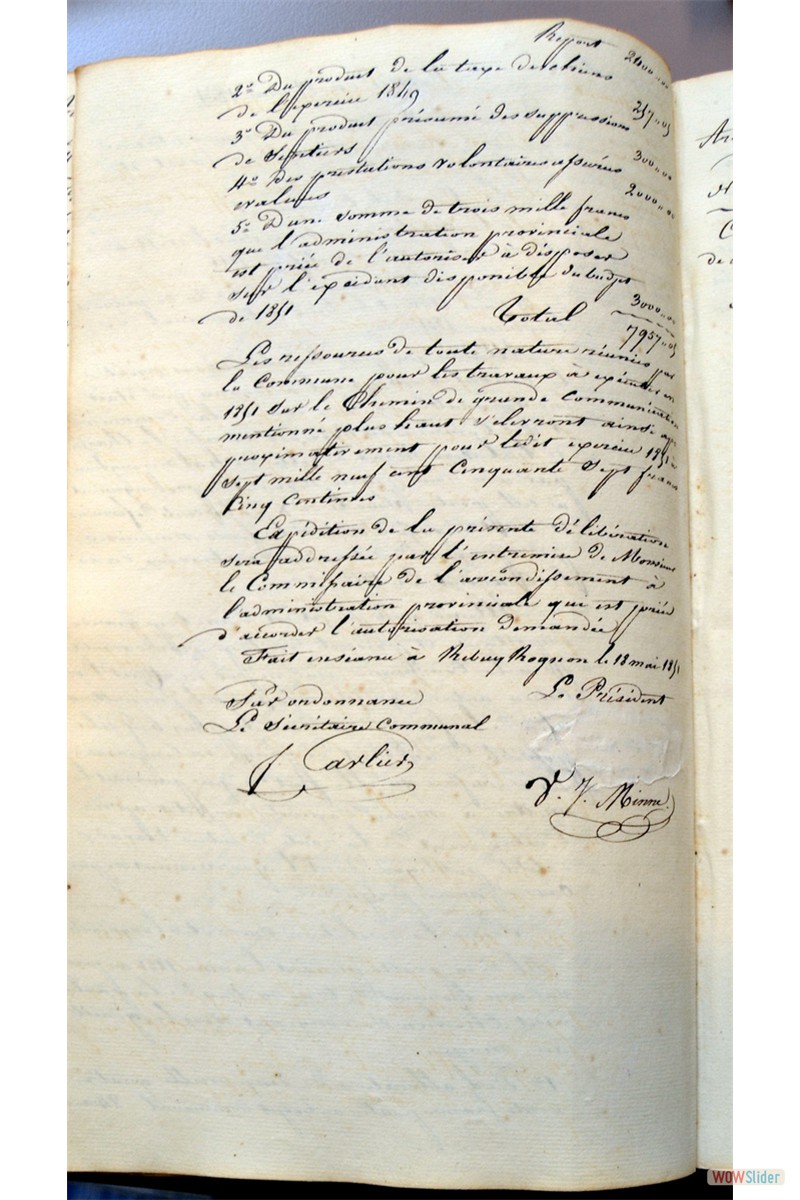 Report 2400,,00
2° Du produit de la taxe des chiens
de l'exercice 1849 257,,05
3° Du produit présumé des suppressions
de sentiers 300,,00
4° Des prestations volontaires assurées
évaluées 2000,,00
5° D'une somme de trois mille francs
que l'administration provinciale
est priée de l'autoriser à disposer
sur l'excédant disponible du budget
de 1851 3000,,00
Total 7957,,05
Les ressources de toute nature réunies par
la Commune pour les travaux à exécuter en
1851 sur le Chemin de grande communication
mentionné plus haut s'éleveront ainsi ap
proximativement pour ledit exercice 1851 à
sept mille neuf cent cinquante sept francs
cinq centimes
Expédition de la présente délibération
sera addressée par l'entremise de Monsieur
le Commissaire de l'arrondissement à
l'administration provinciale qui est priée
d'accorder l'autorisation demandée
Fait en séance à Rebecq Rognon le 13 mai 1851
Par ordonnance Le Président
Le Secrétaire Communal
J Carlier
V. J. Minne
WOWSlider